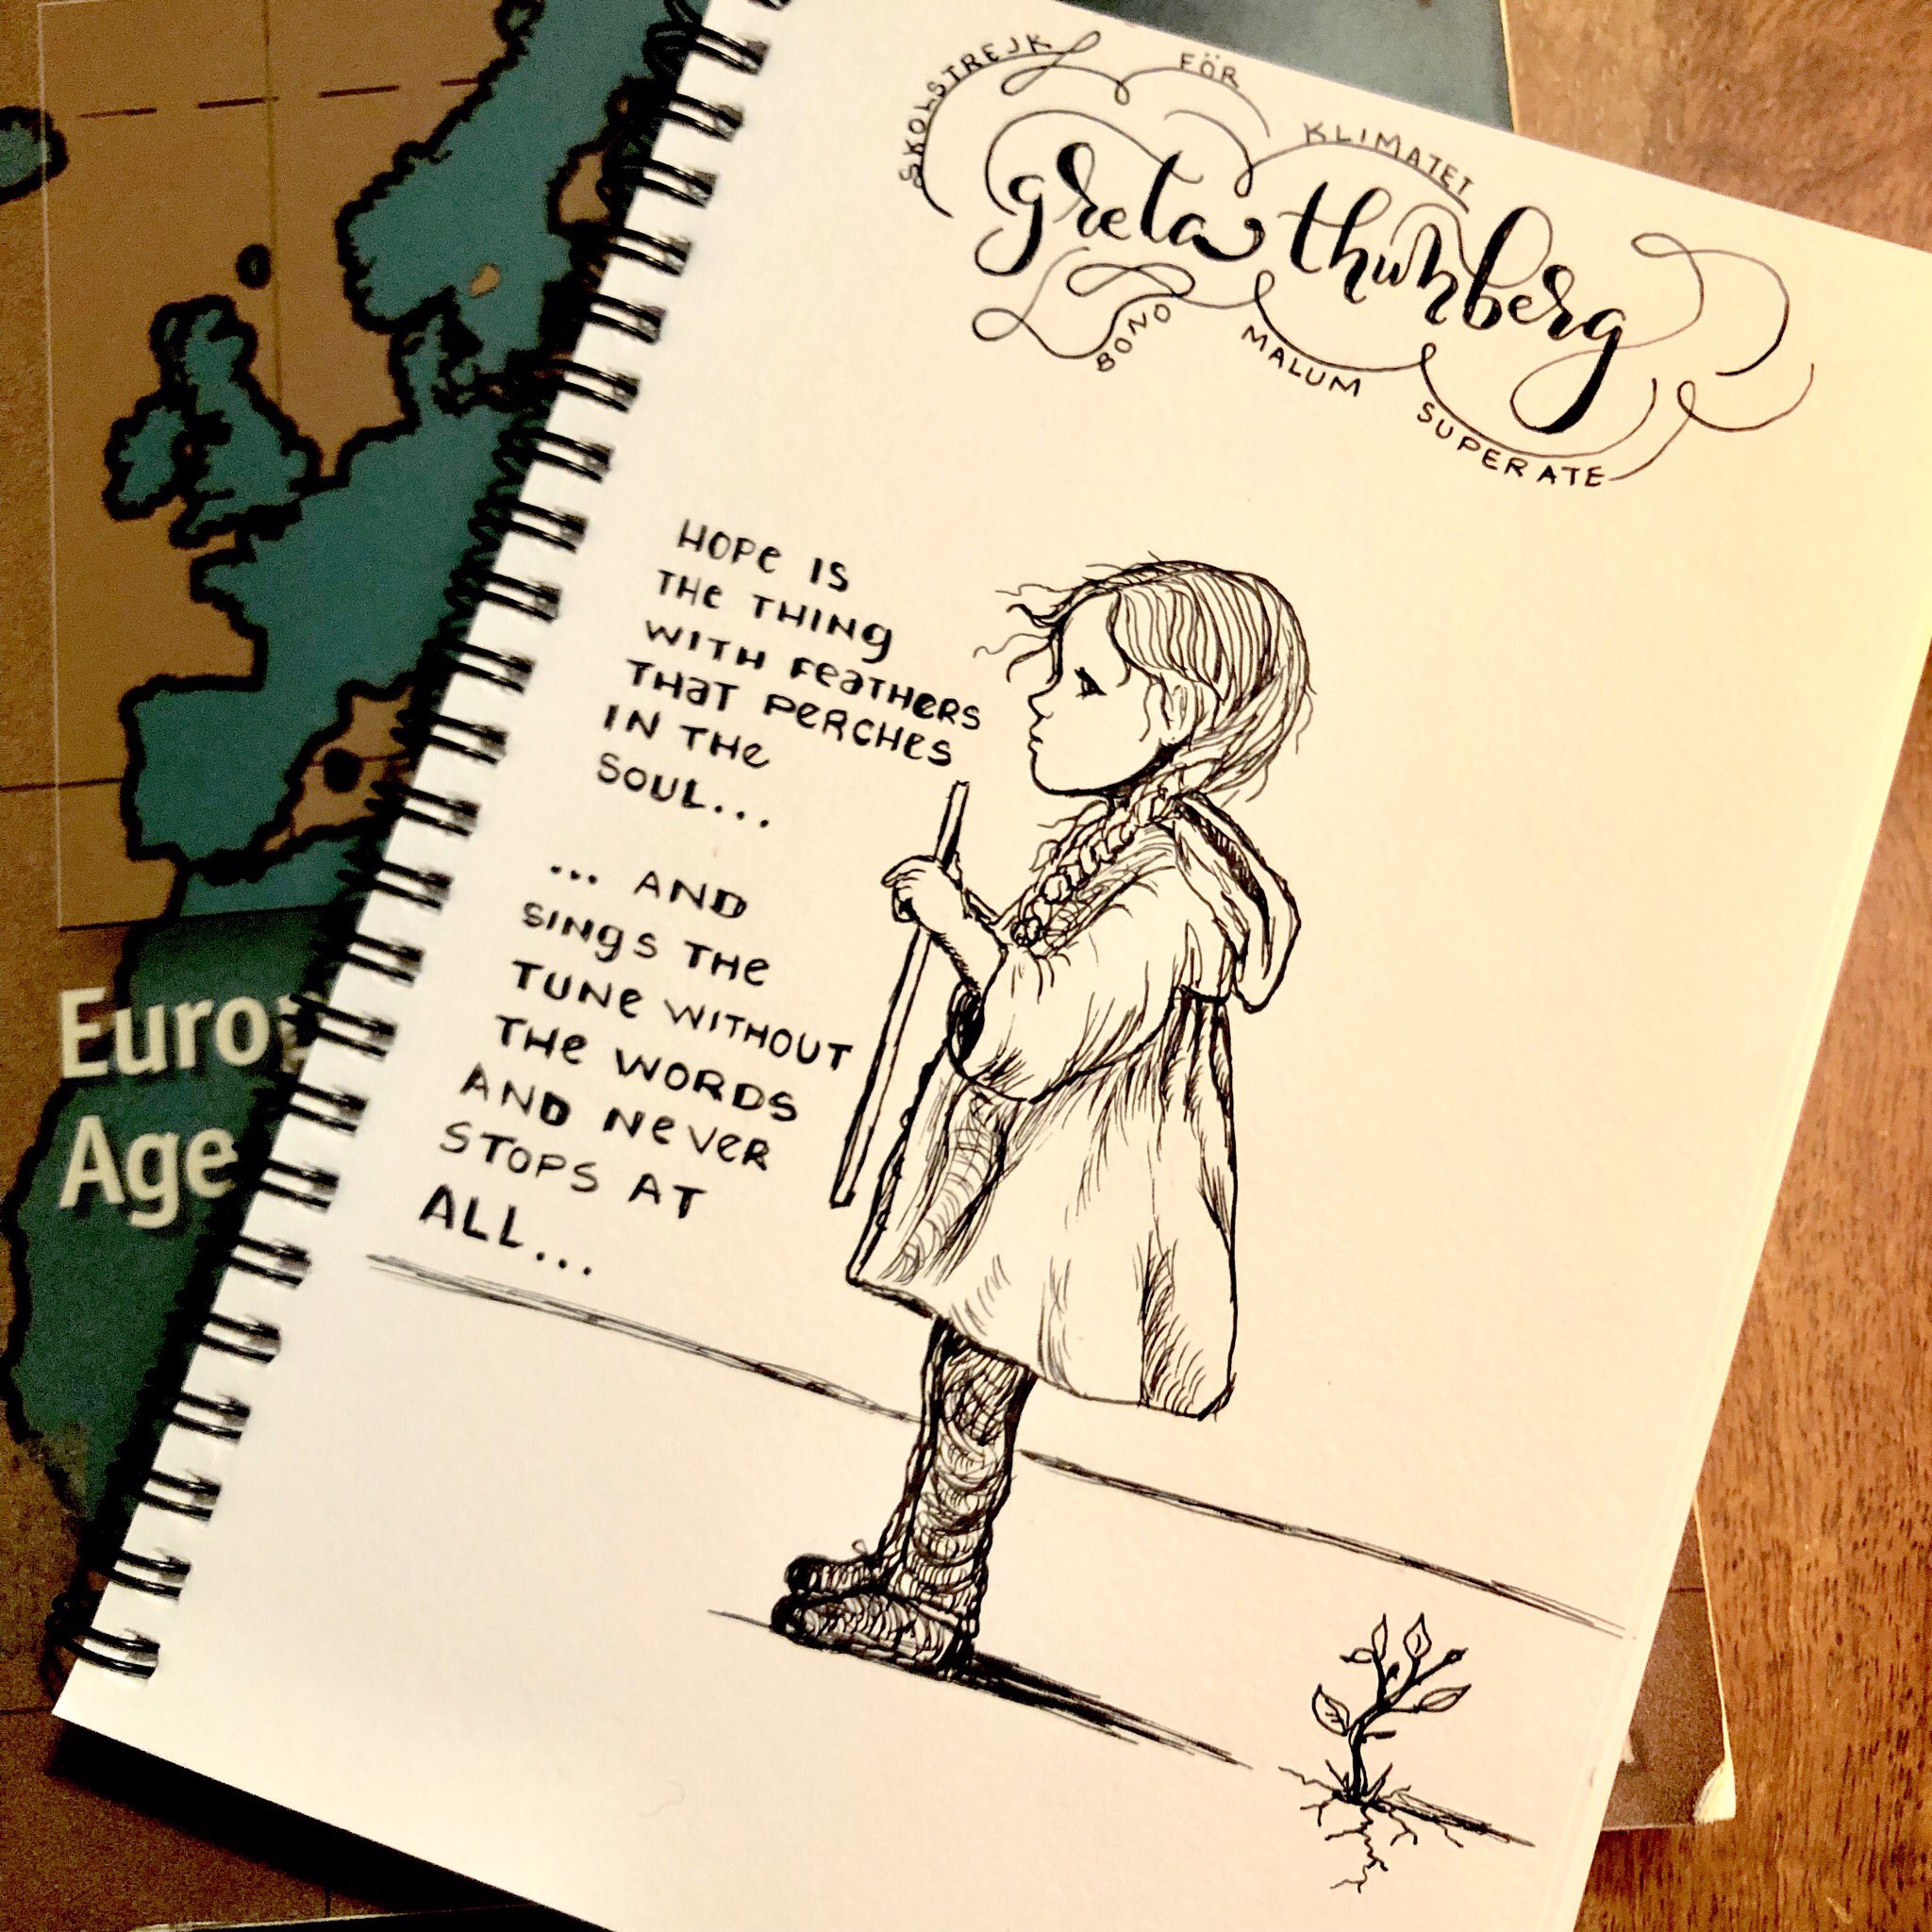 SKOLSTREJK FÖR KLIMATET
greta thunberg
BONO MALUM SUPERATE
HOPE IS
THE THING
WITH FEATHERS
THAT PERCHES
IN THE
SOUL...
... AND
SINGS THE
TUNE WITHOUT
THE WORDS
AND NEVER
STOPS AT
ALL...
Euro
Age